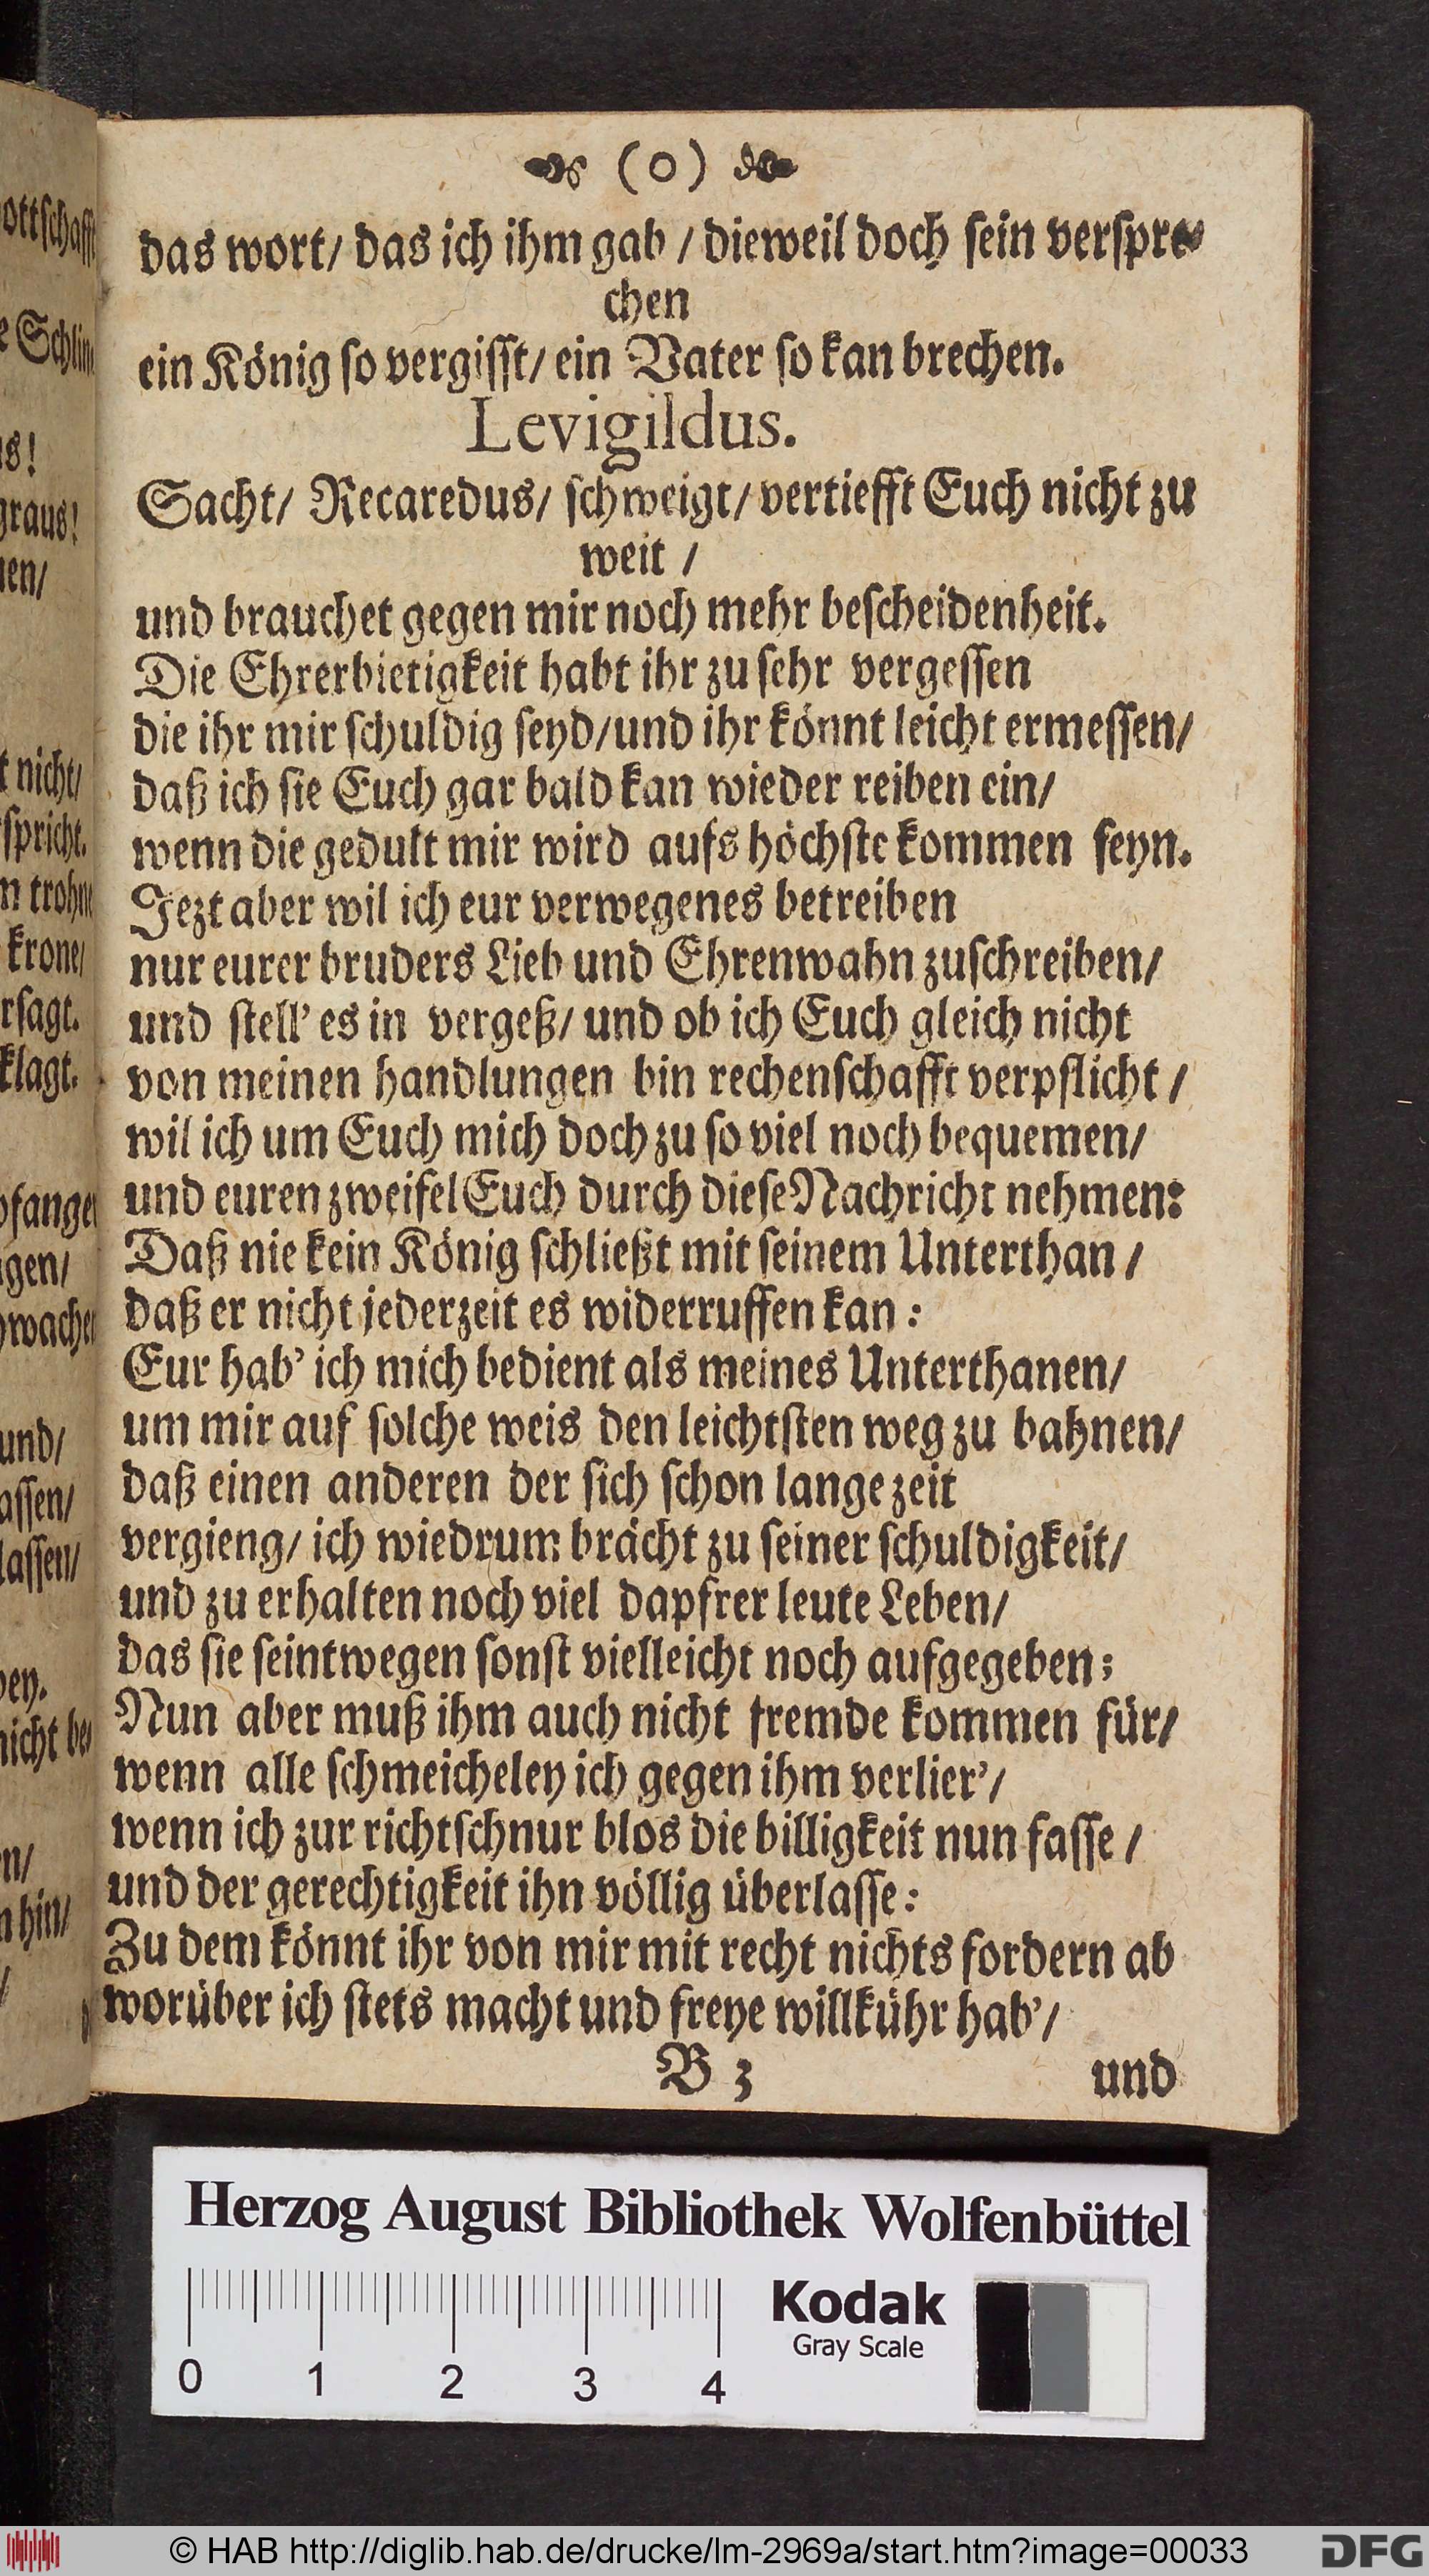 (o)
das wort/ das ich ihm gab / dieweil doch sein verspre-
chen
ein König so vergisst/ ein Vater so kan brechen.
Levigildus.
Sacht/ Recaredus/ schweigt/ vertiefft Euch nicht zu
weit /
und brauchet gegen mir noch mehr bescheidenheit.
Die Ehrerbietigkeit habt ihr zu sehr vergessen
die ihr mir schuldig seyd/und ihr könnt leicht ermessen/
daß ich sie Euch gar bald kan wieder reiben ein/
wenn die gedult mir wird aufs höchste kommen seyn.
Jezt aber wil ich eur verwegenes betreiben
nur eurer bruders Lieb und Ehrenwahn zuschreiben/
und stell' es in vergeß/ und ob ich Euch gleich nicht
von meinen handlungen bin rechenschafft verpflicht /
wil ich um Euch mich doch zu so viel noch bequemen/
und euren zweifel Euch durch diese Nachricht nehmen:
Daß nie kein König schließt mit seinem Unterthan /
daß er nicht jederzeit es widerruffen kan:
Eur hab' ich mich bedient als meines Unterthanen/
um mir auf solche weis den leichtsten weg zu bahnen/
daß einen anderen der sich schon lange zeit
vergieng/ ich wiedrum brächt zu seiner schuldigkeit/
und zu erhalten noch viel dapfrer leute Leben/
das sie seintwegen sonst vielleicht noch aufgegeben;
Nun aber muß ihm auch nicht fremde kommen für/
wenn alle schmeicheley ich gegen ihm verlier'/
wenn ich zur richtschnur blos die billigkeit nun fasse /
und der gerechtigkeit ihn völlig überlasse:
Zu dem könnt ihr von mir mit recht nichts fordern ab
worüber ich stets macht und freye willkühr hab'/
B 3
und
ottschafft
e Schlin
us!
graus!
nen/
t nicht/
spricht.
n trohne
krone/
rsagt.
klagt.
pfangen
gen/
wachen
und/
assen/
lassen/
bey.
nicht be-
n/
n hin/
/
Herzog August Bibliothek Wolfenbüttel
0 1 2 3 4
Kodak
Gray Scale
© HAB http://diglib.hab.de/drucke/lm-2969a/start.htm?image=00033
DFG